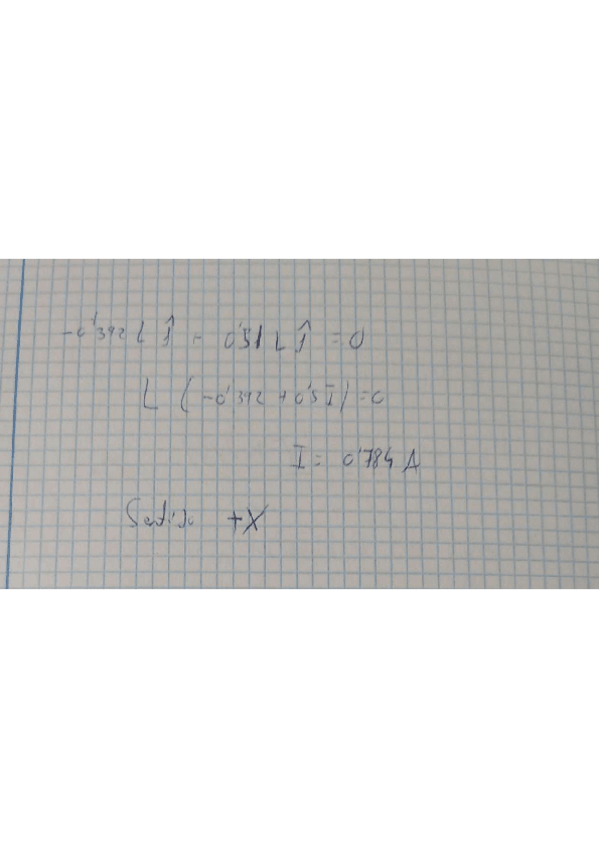 -0'392 L ĵ - 0'5I L ĵ = 0
L (-0'392 + 0'5I) = 0
I = 0'784 A
Sentido +X